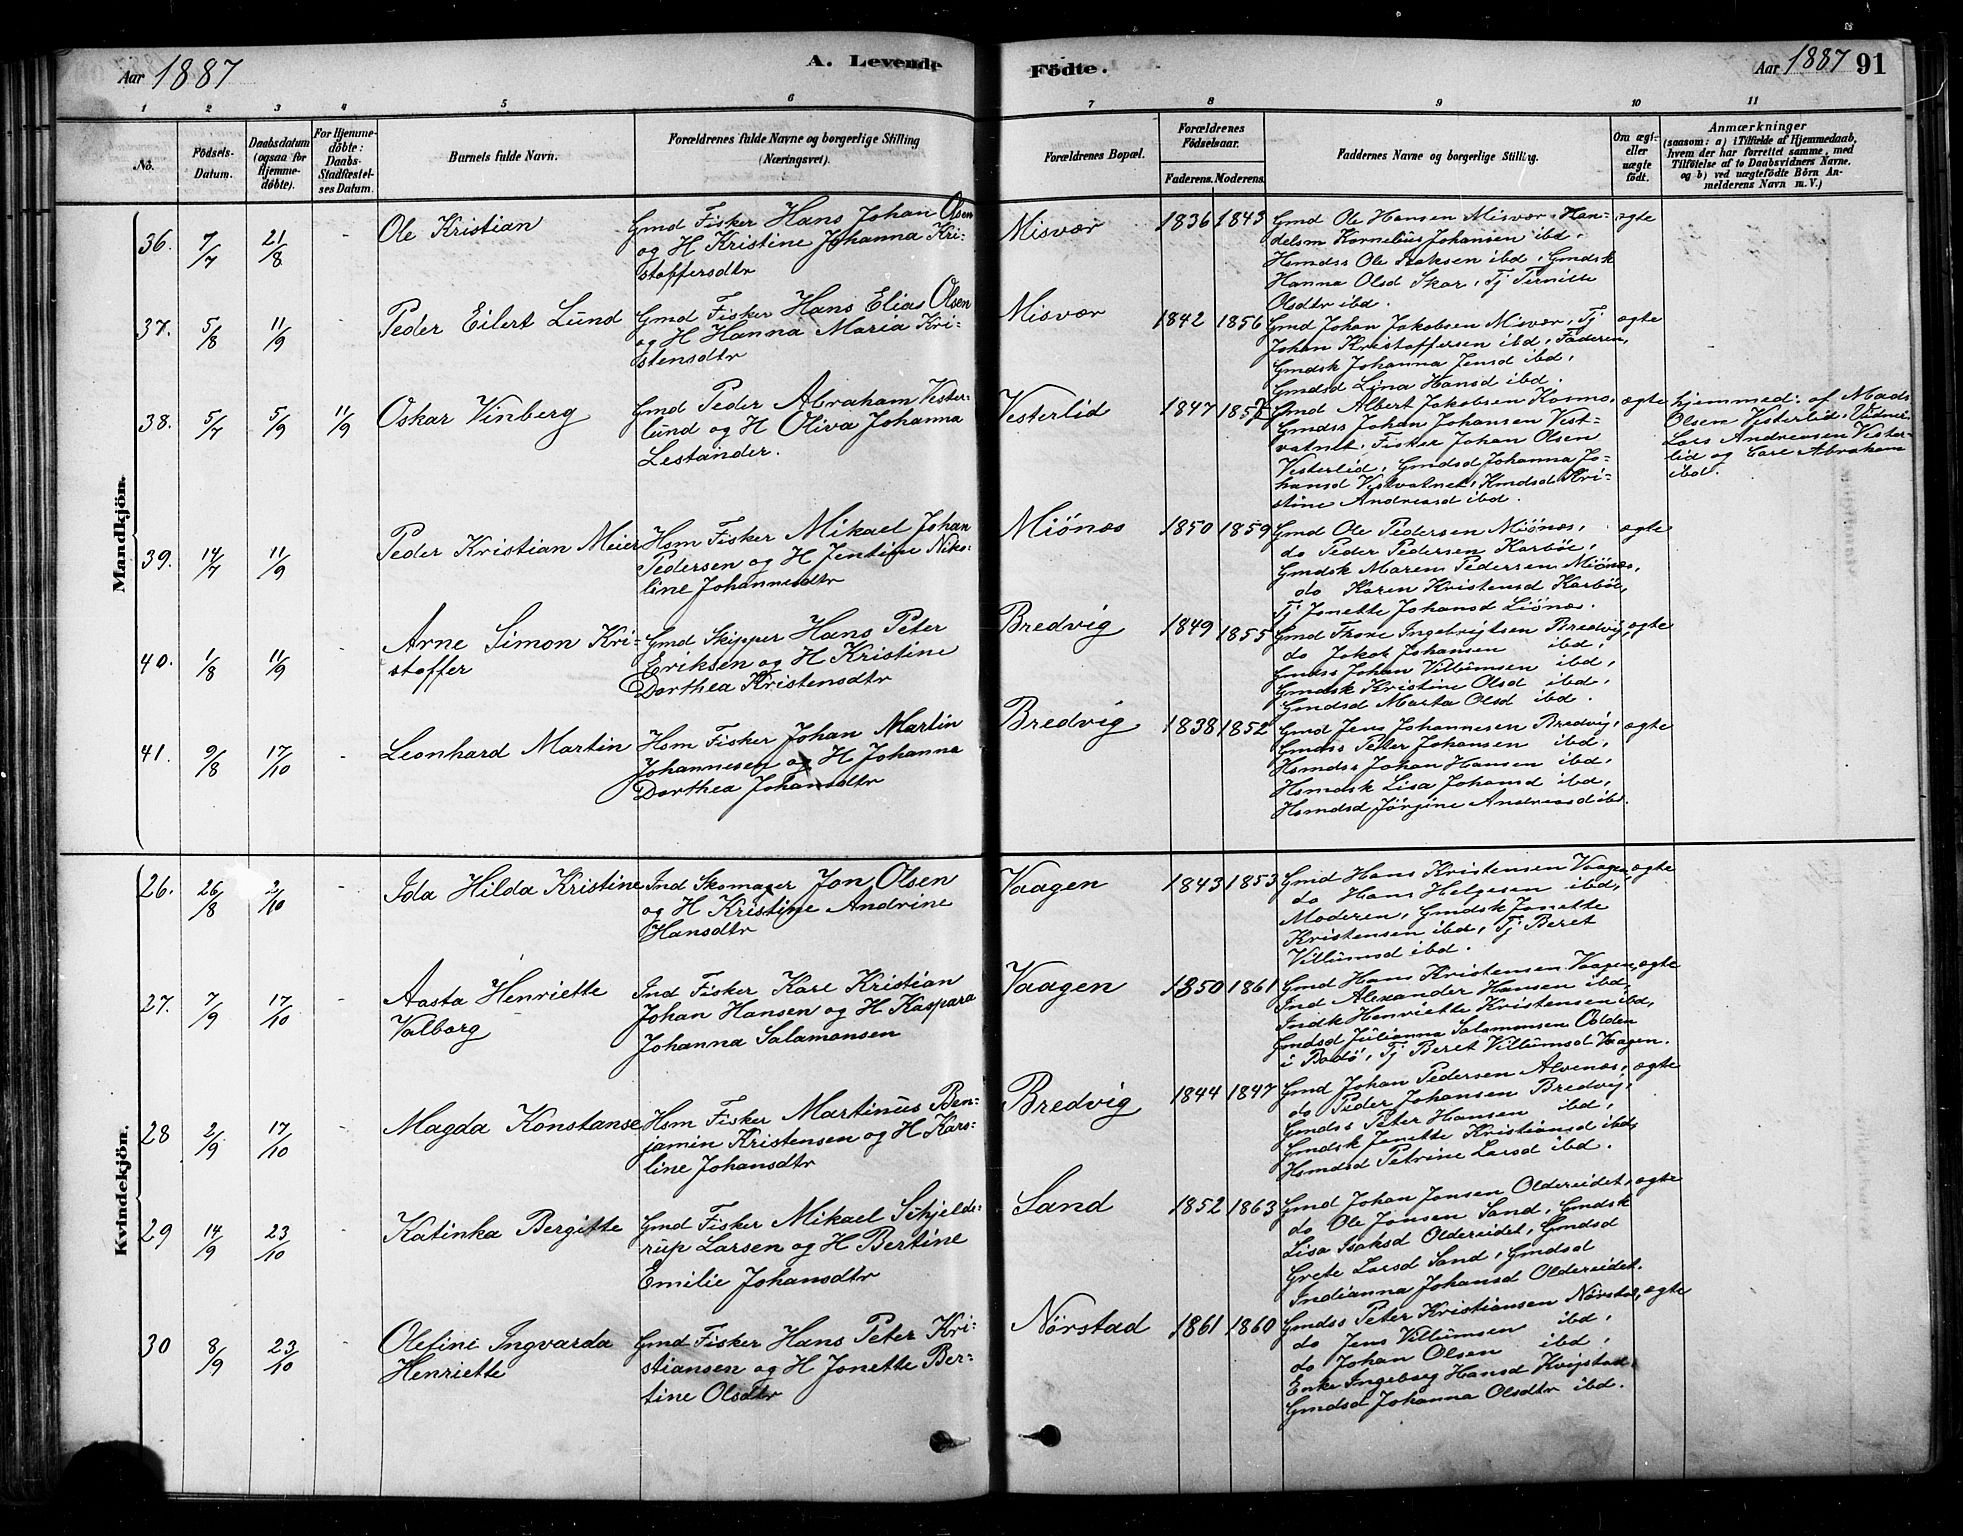 Aar 1887
A. Levende
Födte.
Aar 1887 91
1 2 3 4 5 6 7 8 9 10 11
No.
Födsels-
Datum.
Daabsdatum
(ogsaa for
Hjemme-
döbte).
For Hjemme-
döbte:
Daabs-
Stadfæstel-
ses Datum.
Barnets fulde Navn.
Forældrenes fulde Navne og borgerlige Stilling
(Næringsvei).
Forældrenes Bopæl.
Forældrenes
Födselsaar.
Faderens. Moderens.
Faddernes Navne og borgerlige Stilling.
Om ægte
eller
uægte
födt.
Anmærkninger
(saasom: a) i Tilfælde af Hjemmedaab,
hvem der har forrettet samme, med
Tilföielse af to Daabsvidners Navne.
og b) ved uægtefödte Börn An-
melderens Navn m. V.)
Mandkjön.
36. 7/7 21/8 -
Ole Kristian
Gmd Fisker Hans Johan Olsen
og H Kristine Johanna Kri-
stoffersdtr
Misvær
1836 1843
Gmd Ole Hansen Misvær, Han-
delsm Kornelius Johansen ibd,
Hsmdss Ole Isaksen ibd, Gmdsk
Hanna Olsd Skar, Tj Pernille
Olsdtr ibd.
ægte
37. 5/8 11/9 -
Peder Eilert Lund
Gmd Fisker Hans Elias Olsen
og H Hanna Maria Kri-
stensdtr
Misvær
1842 1856
Gmd Johan Jakobsen Misvær, Tj
Johan Kristoffersen ibd, Faderen,
Gmdsk Johanna Jensd ibd,
Gmdsd Lina Hansd ibd.
ægte
38. 5/7 5/9 11/9
Oskar Vinberg
Gmd Peder Abraham Vester-
lund og H Oliva Johanna
Lestander.
Vesterlid
1847 1857
Gmd Albert Jakobsen Kosmo,
Gmdss Johan Johansen Vest-
vatnet, Fisker Johan Olsen
Vesterlid, Gmdsd Johanna Jo-
hansd Vestvatnet, Kmdsd Kri-
stine Andreasd ibd.
ægte
hjemmed: af Mads
Olsen Vesterlid. Vidner
Lars Andreasen Vester-
lid og Carl Abraham
ibd.
39. 14/7 11/9
Peder Kristian Meier
Hsm Fisker Mikael Johan
Pedersen og H Jentine Niko-
line Johannesdtr
Miönæs
1850 1859
Gmd Ole Pedersen Miönæs,
do Peder Pedersen Karböl,
Gmdsk Maren Pedersen Miönæs,
do Karen Kristensd Karböl,
Tj Jonette Johansd Liönæs.
ægte
40. 1/8 11/9
Arne Simon Kri-
stoffer
Gmd Skipper Hans Peter
Eriksen og H Kristine
Dorthea Kristensdtr
Bredvig
1849 1855
Gmd Thore Ingebrigtsen Bredvig,
do Jakob Johansen ibd,
Gmdss Johan Villumsen ibd,
Gmdsk Kristine Olsd ibd,
Gmdsd Marta Olsd ibd.
ægte
41. 9/8 17/10 -
Leonhard Martin
Hsm Fisker Johan Martin
Johannesen og H Johanna
Dorthea Johansdtr
Bredvig
1838 1852
Gmd Jens Johannesen Bredvig,
Gmdss Peter Johansen ibd,
Hsmdss Johan Hansen ibd,
Hsmdsk Lisa Johansd ibd,
Hsmdsd Jörgine Andreasd ibd.
ægte
Kvindekjön.
26. 26/8 2/10 -
Ida Hilda Kristine
Ind Skomager Jon Olsen
og H Kristine Andrine
Hansdtr
Vaagen
1843 1853
Gmd Hans Kristensen Vaagen,
do Hans Helgesen ibd,
Moderen, Gmdsk Jonette
Kristensen ibd, Tj Beret
Villumsd ibd.
ægte
27. 7/9 17/10 -
Aasta Henriette
Valborg
Ind Fisker Karl Kristian
Johan Hansen og H Kaspara
Johanna Salamonsen
Vaagen
1850 1861
Gmd Hans Kristensen Vaagen,
Ind Alexander Hansen ibd,
Indk Henriette Kristensen ibd,
Gmdsd Julianna Salamonsen Oolden
i Bodö, Tj Beret Villumsd Vaagen.
ægte
28 2/9 17/10 -
Magda Konstanse
Hsm Fisker Martinus Ben-
jamin Kristensen og H Kars-
line Johansdtr
Bredvig
1844 1847
Gmd Johan Pedersen Alvenæs,
do Peder Johansen Bredvig,
Gmdss Peter Hansen ibd,
Gmdsk Jonette Kristiansd ibd,
Hsmdsd Petrine Larsd ibd.
ægte
29 14/9 23/10 -
Katinka Bergitte
Gmd Fisker Mikael Schjelde-
rup Larsen og H Bertine
Emilie Johansdtr
Sand
1852 1863
Gmd Johan Jonsen Oldereidet,
do Ole Jonsen Sand, Gmdsk
Lisa Isaksd Oldereidet, Gmdsd
Grete Larsd Sand, Gmdsd
Indianna Johansd Oldereidet.
ægte
30 8/9 23/10 -
Olefine Ingvarda
Henriette
Gmd Fisker Hans Peter Kri-
stiansen og H Jonette Ber-
tine Olsdtr
Nörstad
1861 1860
Gmdss Peter Kristiansen Nörstad,
do Jens Villumsen ibd,
do Johan Olsen ibd,
Enke Ingeborg Hansd Kvigstad,
Gmdsd Johanna Olsdtr ibd.
ægte